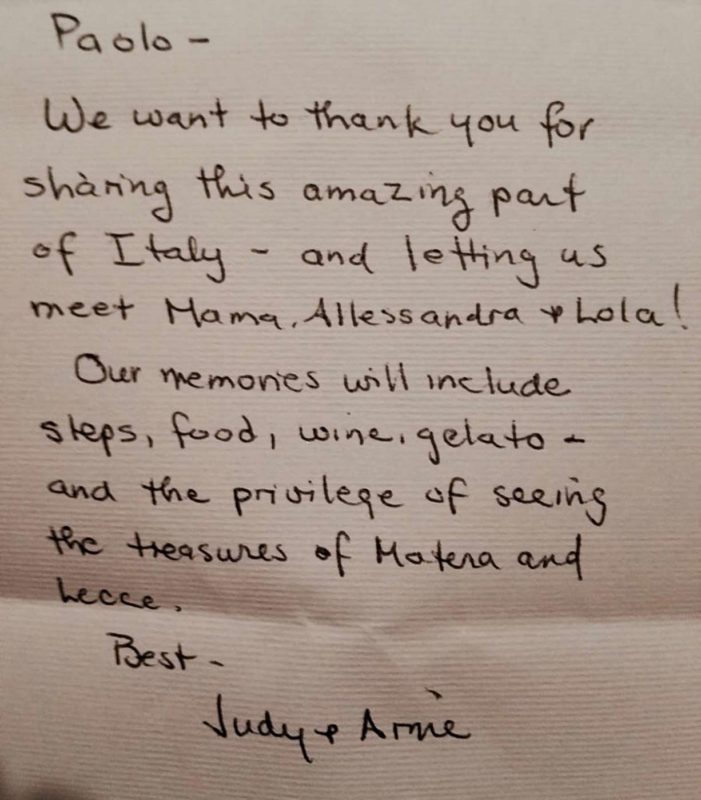 Paolo -
We want to thank you for
sharing this amazing part
of Italy - and letting us
meet Mama, Allessandra + Lola!
Our memories will include
steps, food, wine, gelato -
and the privilege of seeing
the treasures of Matera and
Lecce.
Best -
Judy + Arnie